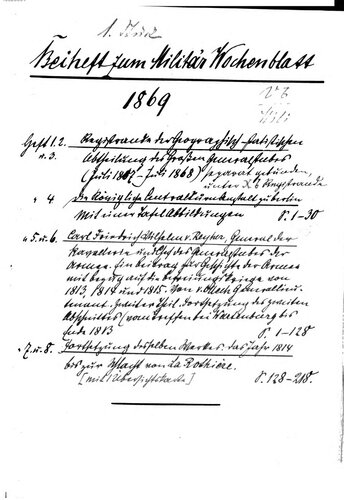 1. Stück
Beiheft zum Militär Wochenblatt
1869
Heft 1. 2. Registrande der Geographisch-statistischen
u. 3. Abtheilung des Großen Generalstabes
(Juli 1867 – Juli 1868) separat gebunden,
unter Registrande
" 4 die Königliche Central-Turnanstalt zu Berlin
Mit einer Tafel Abbildungen S. 1-30
" 5. u. 6. Carl Friedrich Wilhelm v. Reyher, General der
Kavallerie und Chef des Generalstabes der
Armee. Ein Beitrag zur Geschichte der Armee
mit bezug auf die Befreiungskriege von
1813, 1814 und 1815. Von v. Ollech Generallieu-
tenant. Zweiter Theil. Fortsetzung des zweiten
Abschnittes (vom Treffen bei Wartenburg bis
Ende 1813 S. 1-128
" 7. u. 8. Fortsetzung desselben Werkes. das Jahr 1814
bis zur Schlacht von La Rothière.
[mit 1 Übersichtskarte] S. 128-218.